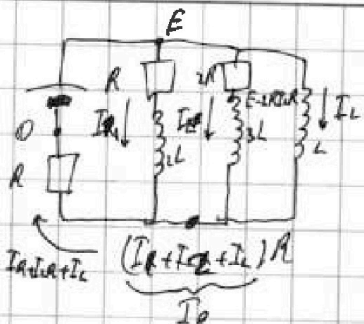 E
R
2R
E-2RI₂R
I_L
0
2L
3L
L
R
I_R+I_2R+I_L
(I_R+I_2R+I_L)R
I_0